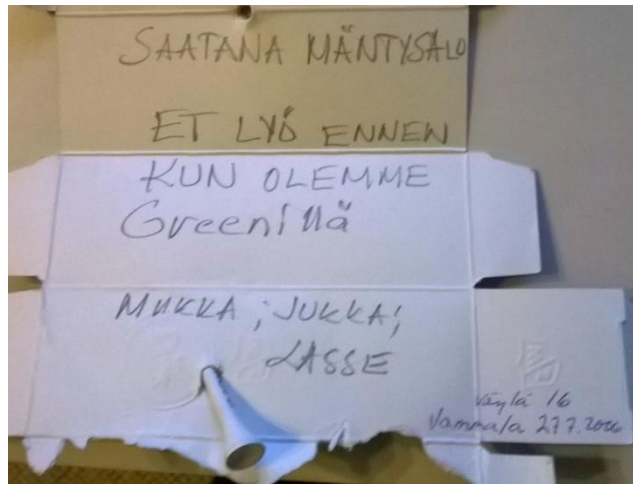 SAATANA MÄNTYSALO
ET LYÖ ENNEN
KUN OLEMME
Greenillä
MUKKA, JUKKA,
LASSE
väylä 16
Vammala 27.7.2006